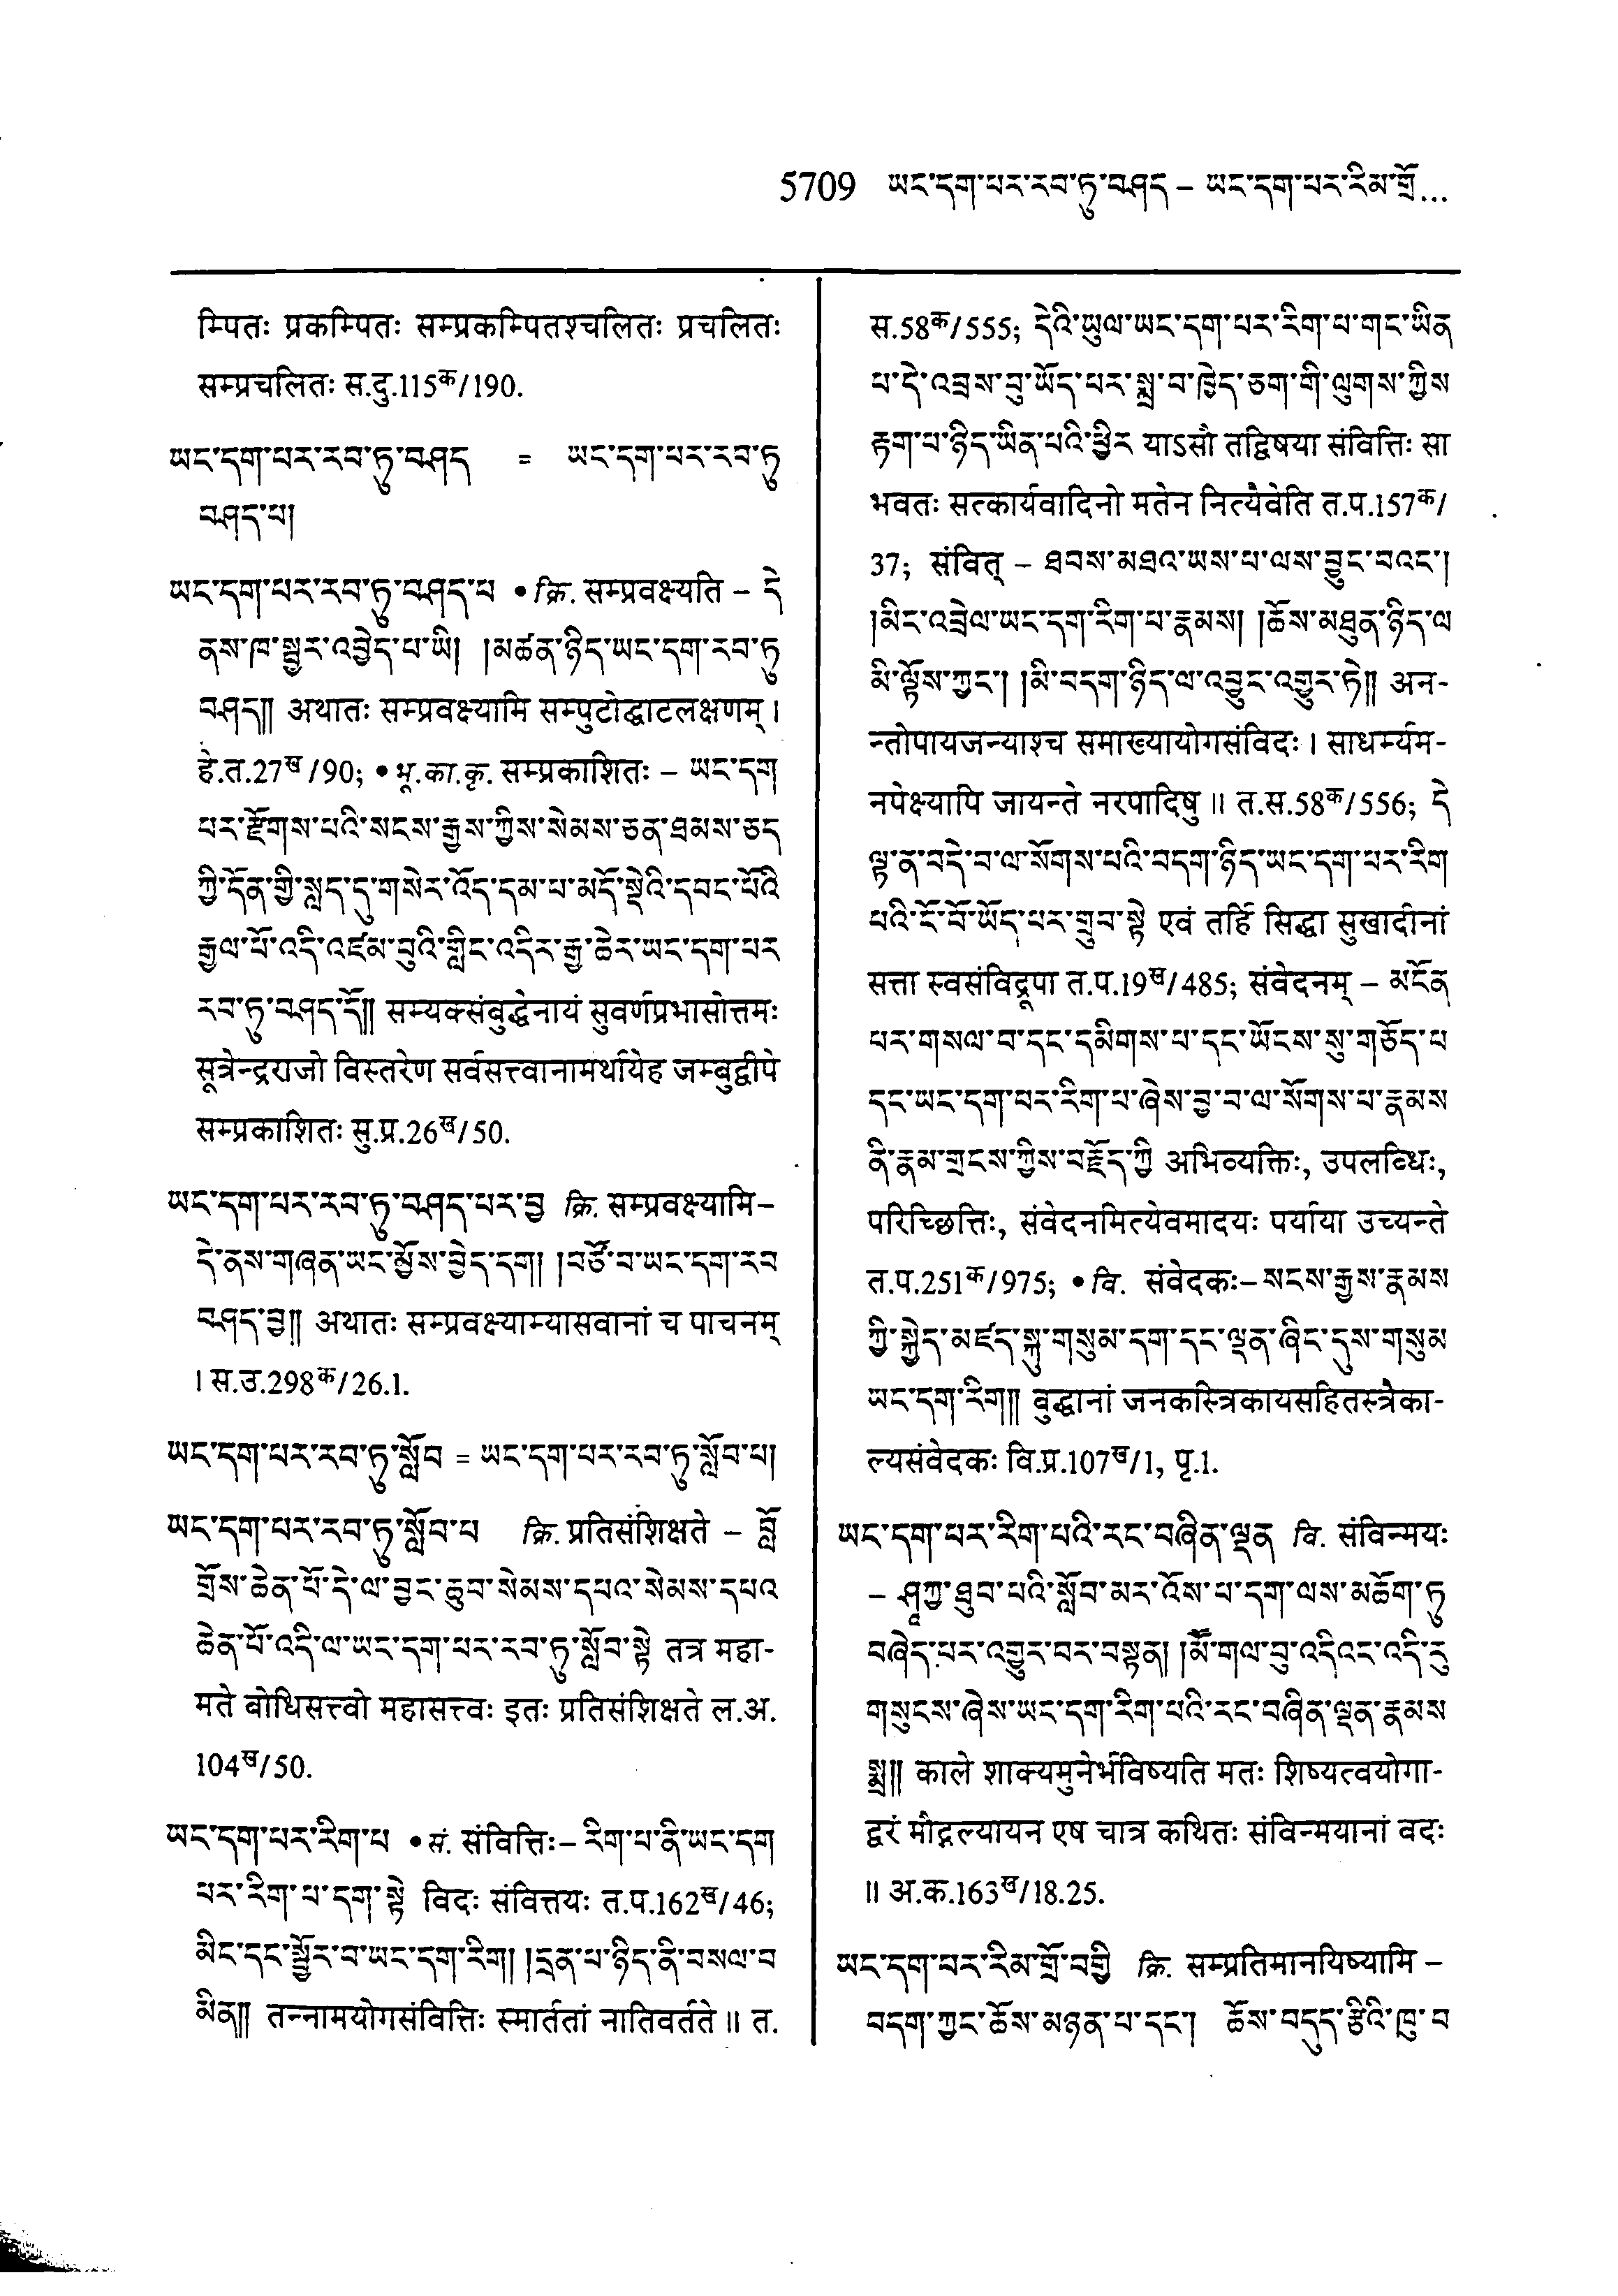 5709 ཡང་དག་པར་རབ་ཏུ་བཤད – ཡང་དག་པར་རིམ་གྲོ...
म्पितः प्रकम्पितः सम्प्रकम्पितश्चलितः प्रचलितः
सम्प्रचलितः स.दु.115क/190.
ཡང་དག་པར་རབ་ཏུ་བཤད = ཡང་དག་པར་རབ་ཏུ
བཤད་པ།
ཡང་དག་པར་རབ་ཏུ་བཤད་པ • क्रि. सम्प्रवक्ष्यति – དེ
ནས་ཁ་སྦྱར་འབྱེད་པ་ཡི། །མཚན་ཉིད་ཡང་དག་རབ་ཏུ
བཤད།། अथातः सम्प्रवक्ष्यामि सम्पुटोद्घाटलक्षणम् ।
हे.त.27ख/90; • भू.का.कृ. सम्प्रकाशितः – ཡང་དག
པར་རྫོགས་པའི་སངས་རྒྱས་ཀྱིས་སེམས་ཅན་ཐམས་ཅད
ཀྱི་དོན་གྱི་སླད་དུ་གསེར་འོད་དམ་པ་མདོ་སྡེའི་དབང་པོའི
རྒྱལ་པོ་འདི་འཛམ་བུའི་གླིང་འདིར་རྒྱ་ཆེར་ཡང་དག་པར
རབ་ཏུ་བཤད་དོ།། सम्यक्संबुद्धेनायं सुवर्णप्रभासोत्तमः
सूत्रेन्द्रराजो विस्तरेण सर्वसत्त्वानामर्थायेह जम्बुद्वीपे
सम्प्रकाशितः सु.प्र.26ख/50.
ཡང་དག་པར་རབ་ཏུ་བཤད་པར་བྱ क्रि. सम्प्रवक्ष्यामि–
དེ་ནས་གཞན་ཡང་མྱོས་བྱེད་དག། །བཙོ་བ་ཡང་དག་རབ
བཤད་བྱ།། अथातः सम्प्रवक्ष्याम्यासवानां च पाचनम्
। स.उ.298क/26.1.
ཡང་དག་པར་རབ་ཏུ་སློབ = ཡང་དག་པར་རབ་ཏུ་སློབ་པ།
ཡང་དག་པར་རབ་ཏུ་སློབ་པ क्रि. प्रतिसंशिक्षते – བློ
གྲོས་ཆེན་པོ་དེ་ལ་བྱང་ཆུབ་སེམས་དཔའ་སེམས་དཔའ
ཆེན་པོ་འདི་ལ་ཡང་དག་པར་རབ་ཏུ་སློབ་སྟེ तत्र महा-
मते बोधिसत्त्वो महासत्त्वः इतः प्रतिसंशिक्षते ल.अ.
104ख/50.
ཡང་དག་པར་རིག་པ • सं. संवित्तिः– རིག་པ་ནི་ཡང་དག
པར་རིག་པ་དག་སྟེ विदः संवित्तयः त.प.162ख/46;
མིང་དང་སྦྱོར་བ་ཡང་དག་རིག། །དྲན་པ་ཉིད་ནི་བསལ་བ
མིན།། तन्नामयोगसंवित्तिः स्मार्ततां नातिवर्तते ॥ त.
स.58क/555; དེའི་ཡུལ་ཡང་དག་པར་རིག་པ་གང་ཡིན
པ་དེ་འབྲས་བུ་ཡོད་པར་སྨྲ་བ་ཁྱེད་ཅག་གི་ལུགས་ཀྱིས
རྟག་པ་ཉིད་ཡིན་པའི་ཕྱིར याऽसौ तद्विषया संवित्तिः सा
भवतः सत्कार्यवादिनो मतेन नित्यैवेति त.प.157क/
37; संवित् – ཐབས་མཐའ་ཡས་པ་ལས་བྱུང་བའང་།
།མིང་འབྲེལ་ཡང་དག་རིག་པ་རྣམས། །ཆོས་མཐུན་ཉིད་ལ
མི་ལྟོས་ཀྱང་། །མི་བདག་ཉིད་ལ་འབྱུང་འགྱུར་ཏེ།། अन-
न्तोपायजन्याश्च समाख्यायोगसंविदः । साधर्म्यम-
नपेक्ष्यापि जायन्ते नरपादिषु ॥ त.स.58क/556; དེ
ལྟ་ན་བདེ་བ་ལ་སོགས་པའི་བདག་ཉིད་ཡང་དག་པར་རིག
པའི་ངོ་བོ་ཡོད་པར་གྲུབ་སྟེ एवं तर्हि सिद्धा सुखादीनां
सत्ता स्वसंविद्रूपा त.प.19ख/485; संवेदनम् – མངོན
པར་གསལ་བ་དང་དམིགས་པ་དང་ཡོངས་སུ་གཅོད་པ
དང་ཡང་དག་པར་རིག་པ་ཞེས་བྱ་བ་ལ་སོགས་པ་རྣམས
ནི་རྣམ་གྲངས་ཀྱིས་བརྗོད་ཀྱི अभिव्यक्तिः, उपलब्धिः,
परिच्छित्तिः, संवेदनमित्येवमादयः पर्याया उच्यन्ते
त.प.251क/975; • वि. संवेदकः– སངས་རྒྱས་རྣམས
ཀྱི་སྐྱེད་མཛད་སྐུ་གསུམ་དག་དང་ལྡན་ཞིང་དུས་གསུམ
ཡང་དག་རིག།། बुद्धानां जनकस्त्रिकायसहितस्त्रैका-
ल्यसंवेदकः वि.प्र.107ख/1, पृ.1.
ཡང་དག་པར་རིག་པའི་རང་བཞིན་ལྡན वि. संविन्मयः
– ཤཱཀྱ་ཐུབ་པའི་སློབ་མར་འོས་པ་དག་ལས་མཆོག་ཏུ
བཞེད་པར་འགྱུར་བར་བསྟན། །མཽ་གལ་བུ་འདིའང་འདི་རུ
གསུངས་ཞེས་ཡང་དག་རིག་པའི་རང་བཞིན་ལྡན་རྣམས
སྨྲ།། काले शाक्यमुनेर्भविष्यति मतः शिष्यत्वयोगा-
द्वरं मौद्गल्यायन एष चात्र कथितः संविन्मयानां वदः
॥ अ.क.163ख/18.25.
ཡང་དག་པར་རིམ་གྲོ་བགྱི क्रि. सम्प्रतिमानयिष्यामि –
བདག་ཀྱང་ཆོས་མཉན་པ་དང་། ཆོས་བདུད་རྩིའི་ཁུ་བ